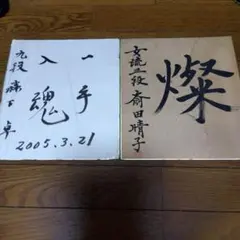 一手
入魂
九段 森下 卓
2005.3.21
燦
女流三段 斎田晴子